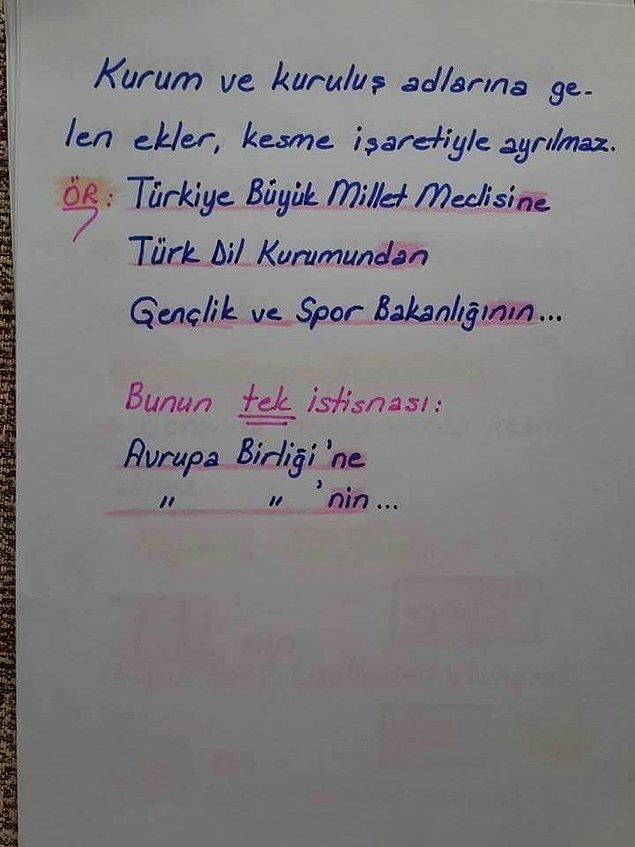 Kurum ve kuruluş adlarına ge-
len ekler, kesme işaretiyle ayrılmaz.
ÖR: Türkiye Büyük Millet Meclisine
Türk Dil Kurumundan
Gençlik ve Spor Bakanlığının...
Bunun tek istisnası:
Avrupa Birliği'ne
" " 'nin...